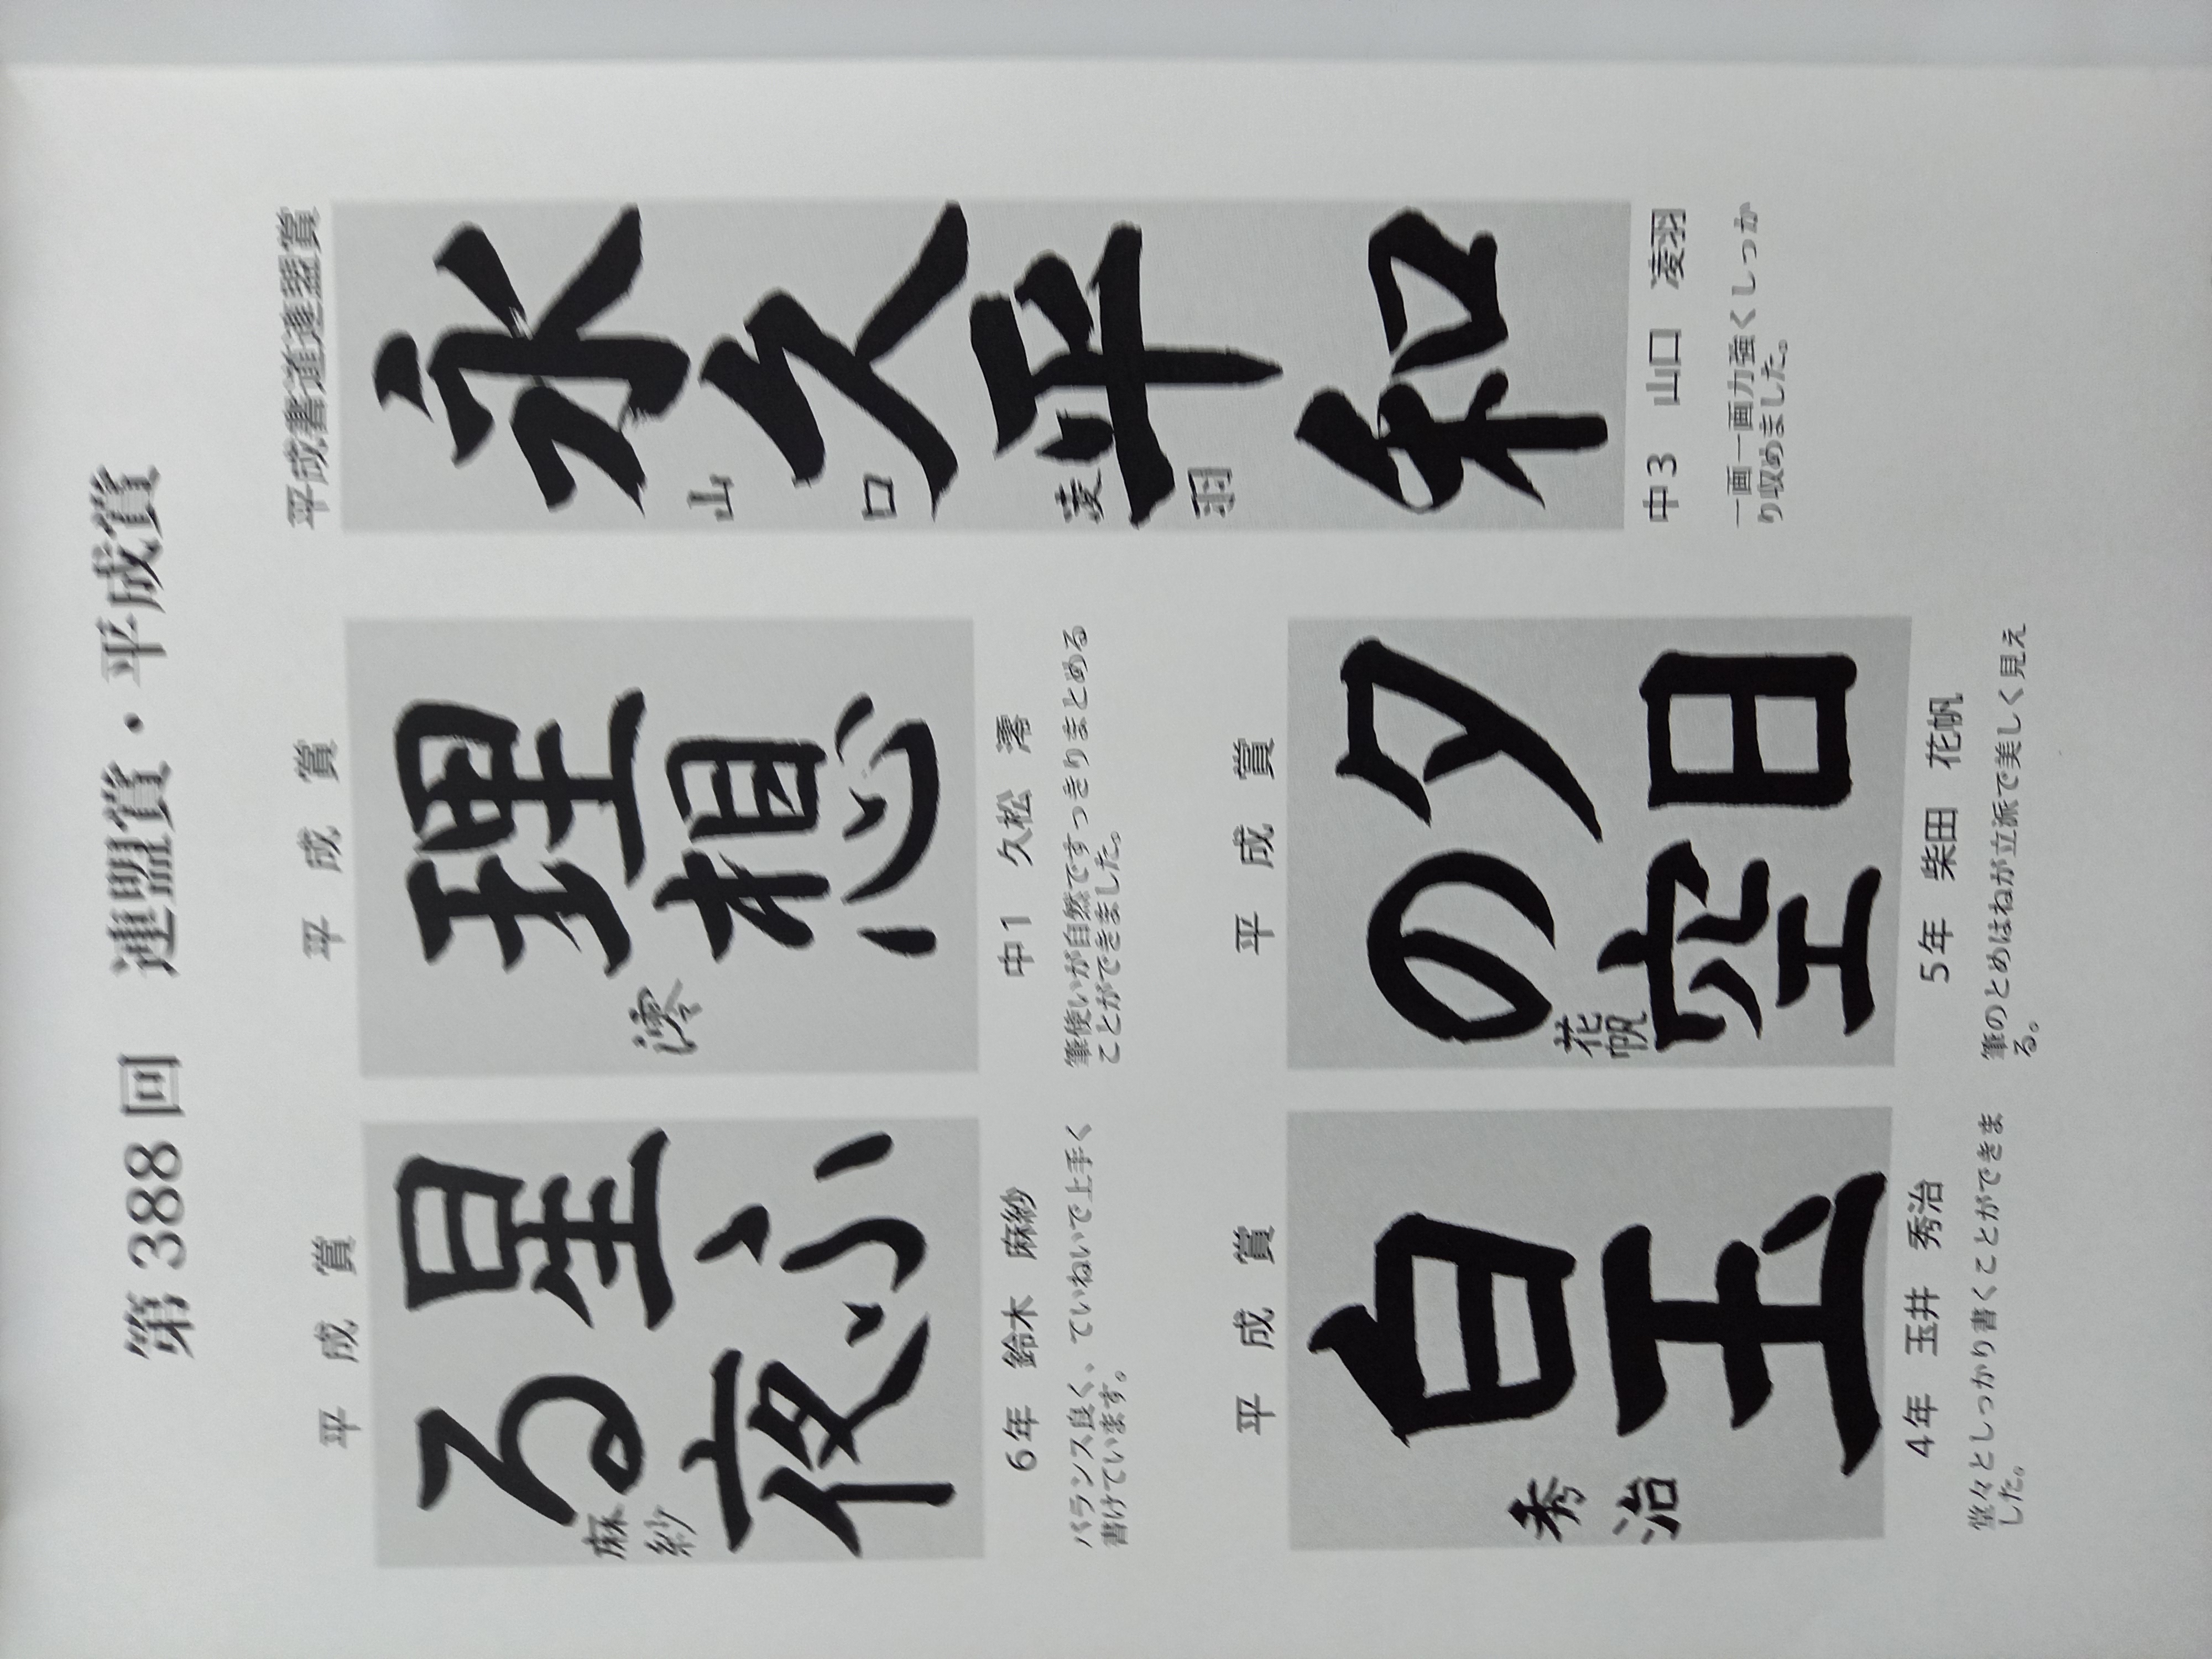 第388回　連盟賞・平成賞
平成書道連盟賞
永久平和
山口凌羽
中3　山口　凌羽
一画一画力強くしっか
り収めました。
平成賞
理想
澪
中1　久松　澪
筆使いが自然ですっきりまとめる
ことができました。
平成賞
星ふ
る夜
麻紗
6年　鈴木　麻紗
バランス良く、ていねいで上手く
書けています。
平成賞
夕日
の空
花帆
5年　柴田　花帆
筆のとめはねが立派で美しく見え
る。
平成賞
白玉
秀治
4年　玉井　秀治
堂々としっかり書くことができま
した。